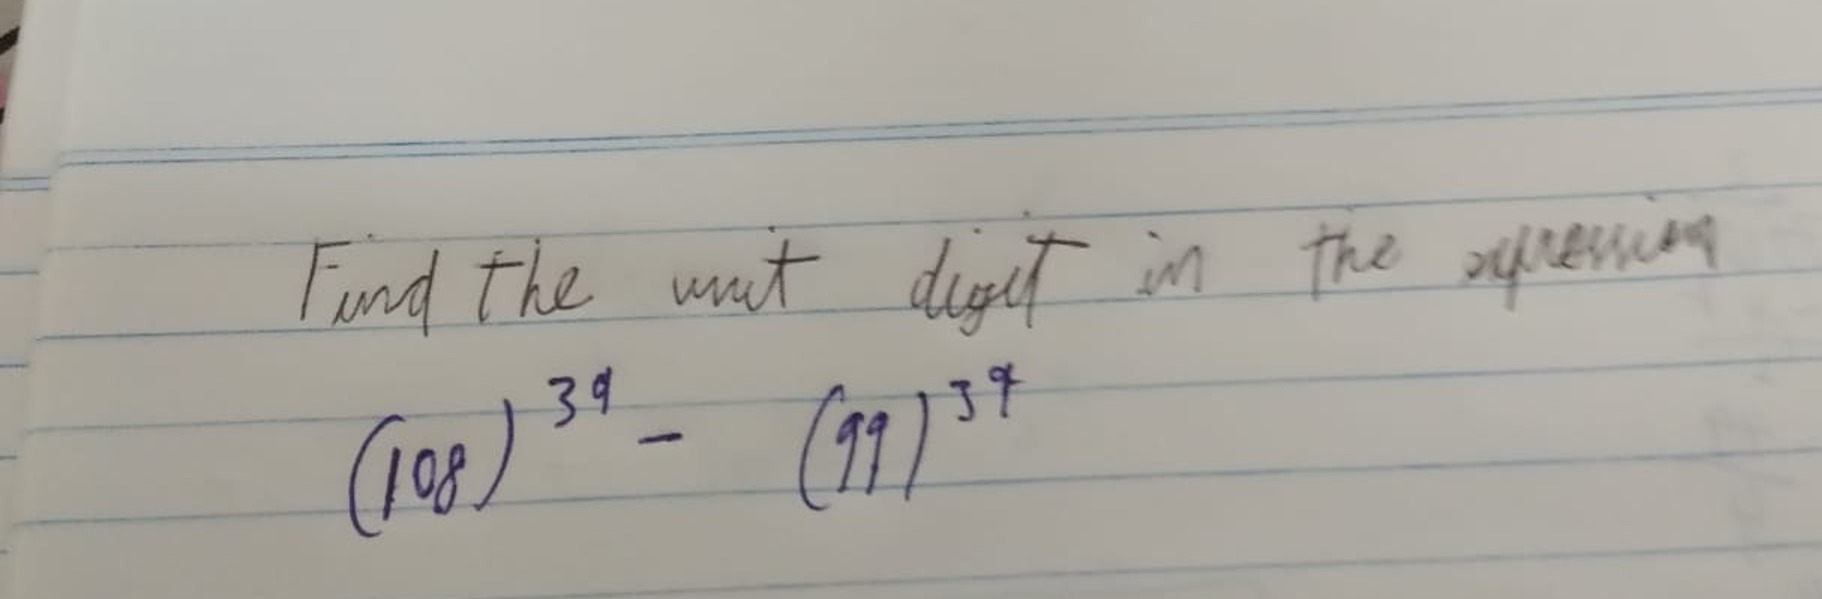 Find the unit digit in the expression
(108)³⁹ - (99)³⁹